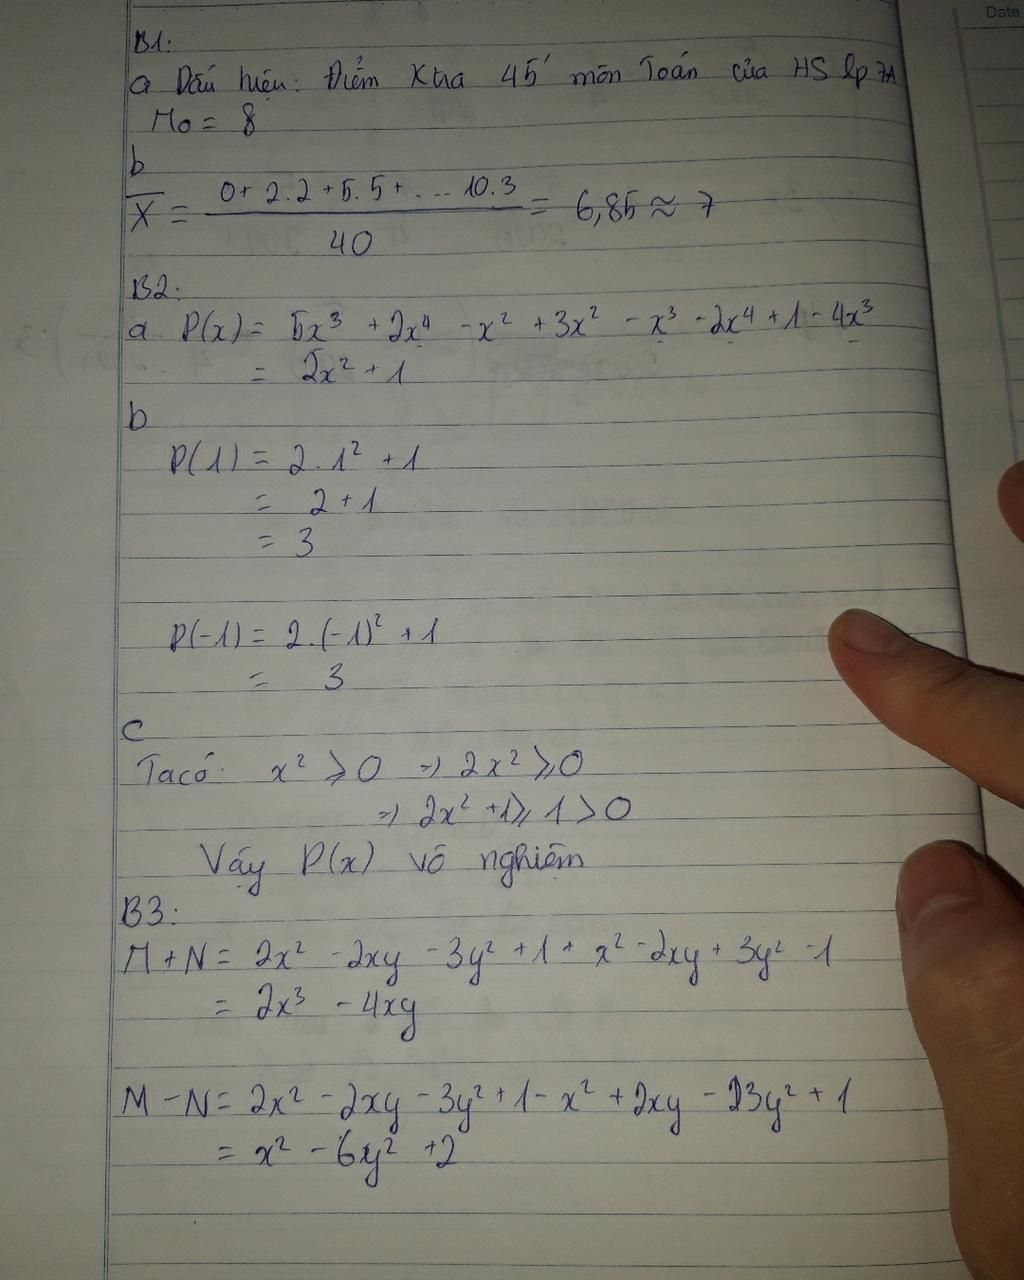 Date
B1:
a Dấu hiệu: Điểm Ktra 45' môn Toán của HS lp 7A
Mo = 8
b
X̅ = (0 + 2.2 + 5.5 + .... 10.3)/40 = 6,85 ≈ 7
B2:
a P(x) = 5x³ + 2x⁴ - x² + 3x² - x³ - 2x⁴ + 1 - 4x³
= 2x² + 1
b
P(1) = 2.1² + 1
= 2 + 1
= 3
P(-1) = 2.(-1)² + 1
= 3
c
Ta có: x² ⩾ 0 => 2x² ⩾ 0
=> 2x² + 1 ⩾ 1 > 0
Vậy P(x) vô nghiệm
B3:
M + N = 2x² - 2xy - 3y² + 1 + x² - 2xy + 3y² - 1
= 2x³ - 4xy
M - N = 2x² - 2xy - 3y² + 1 - x² + 2xy - 3y² + 1
= x² - 6y² + 2